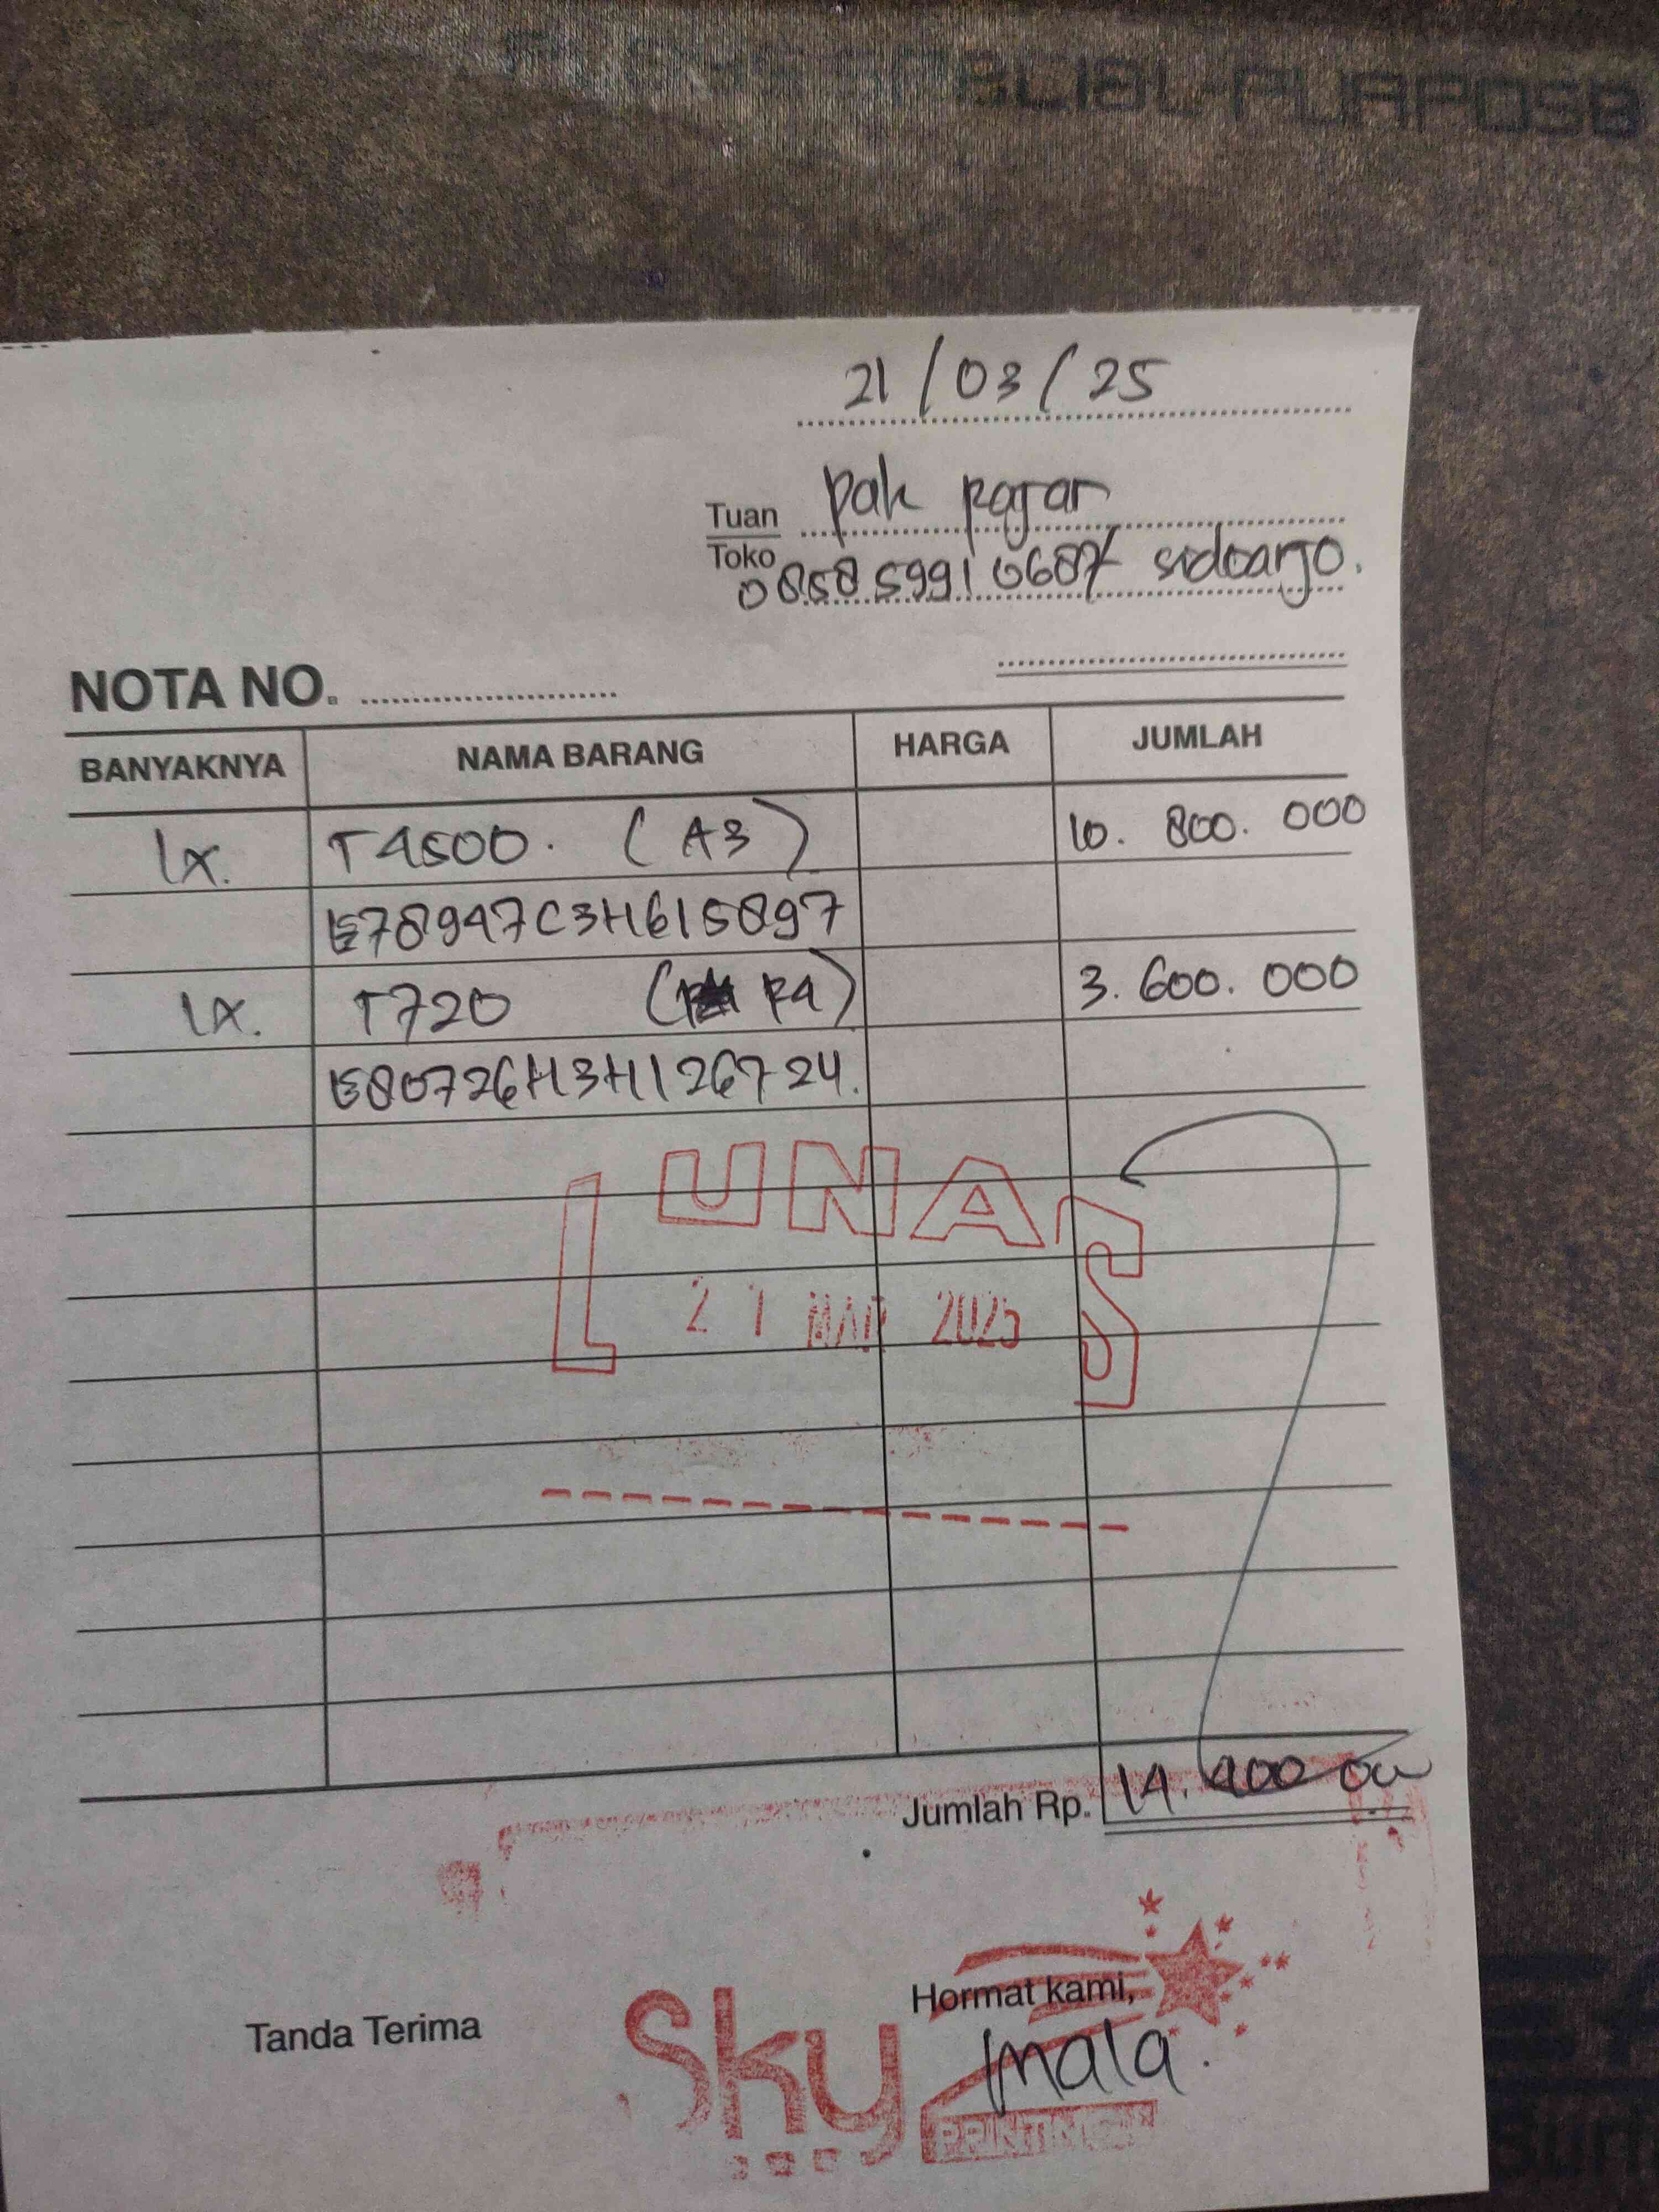 21/03/25
Tuan Pak Fajar
Toko 085859910687 sidoarjo.
NOTA NO.
BANYAKNYA NAMA BARANG HARGA JUMLAH
1x. T4500. (A3) 10. 800. 000
E78947C3H615897
1x. T720 (F4) 3. 600. 000
E80726H3H126724.
LUNAS
21 MAR 2025
Jumlah Rp. 14. 400 000
Hormat kami,
Tanda Terima
mala.
Sky
PRINTING